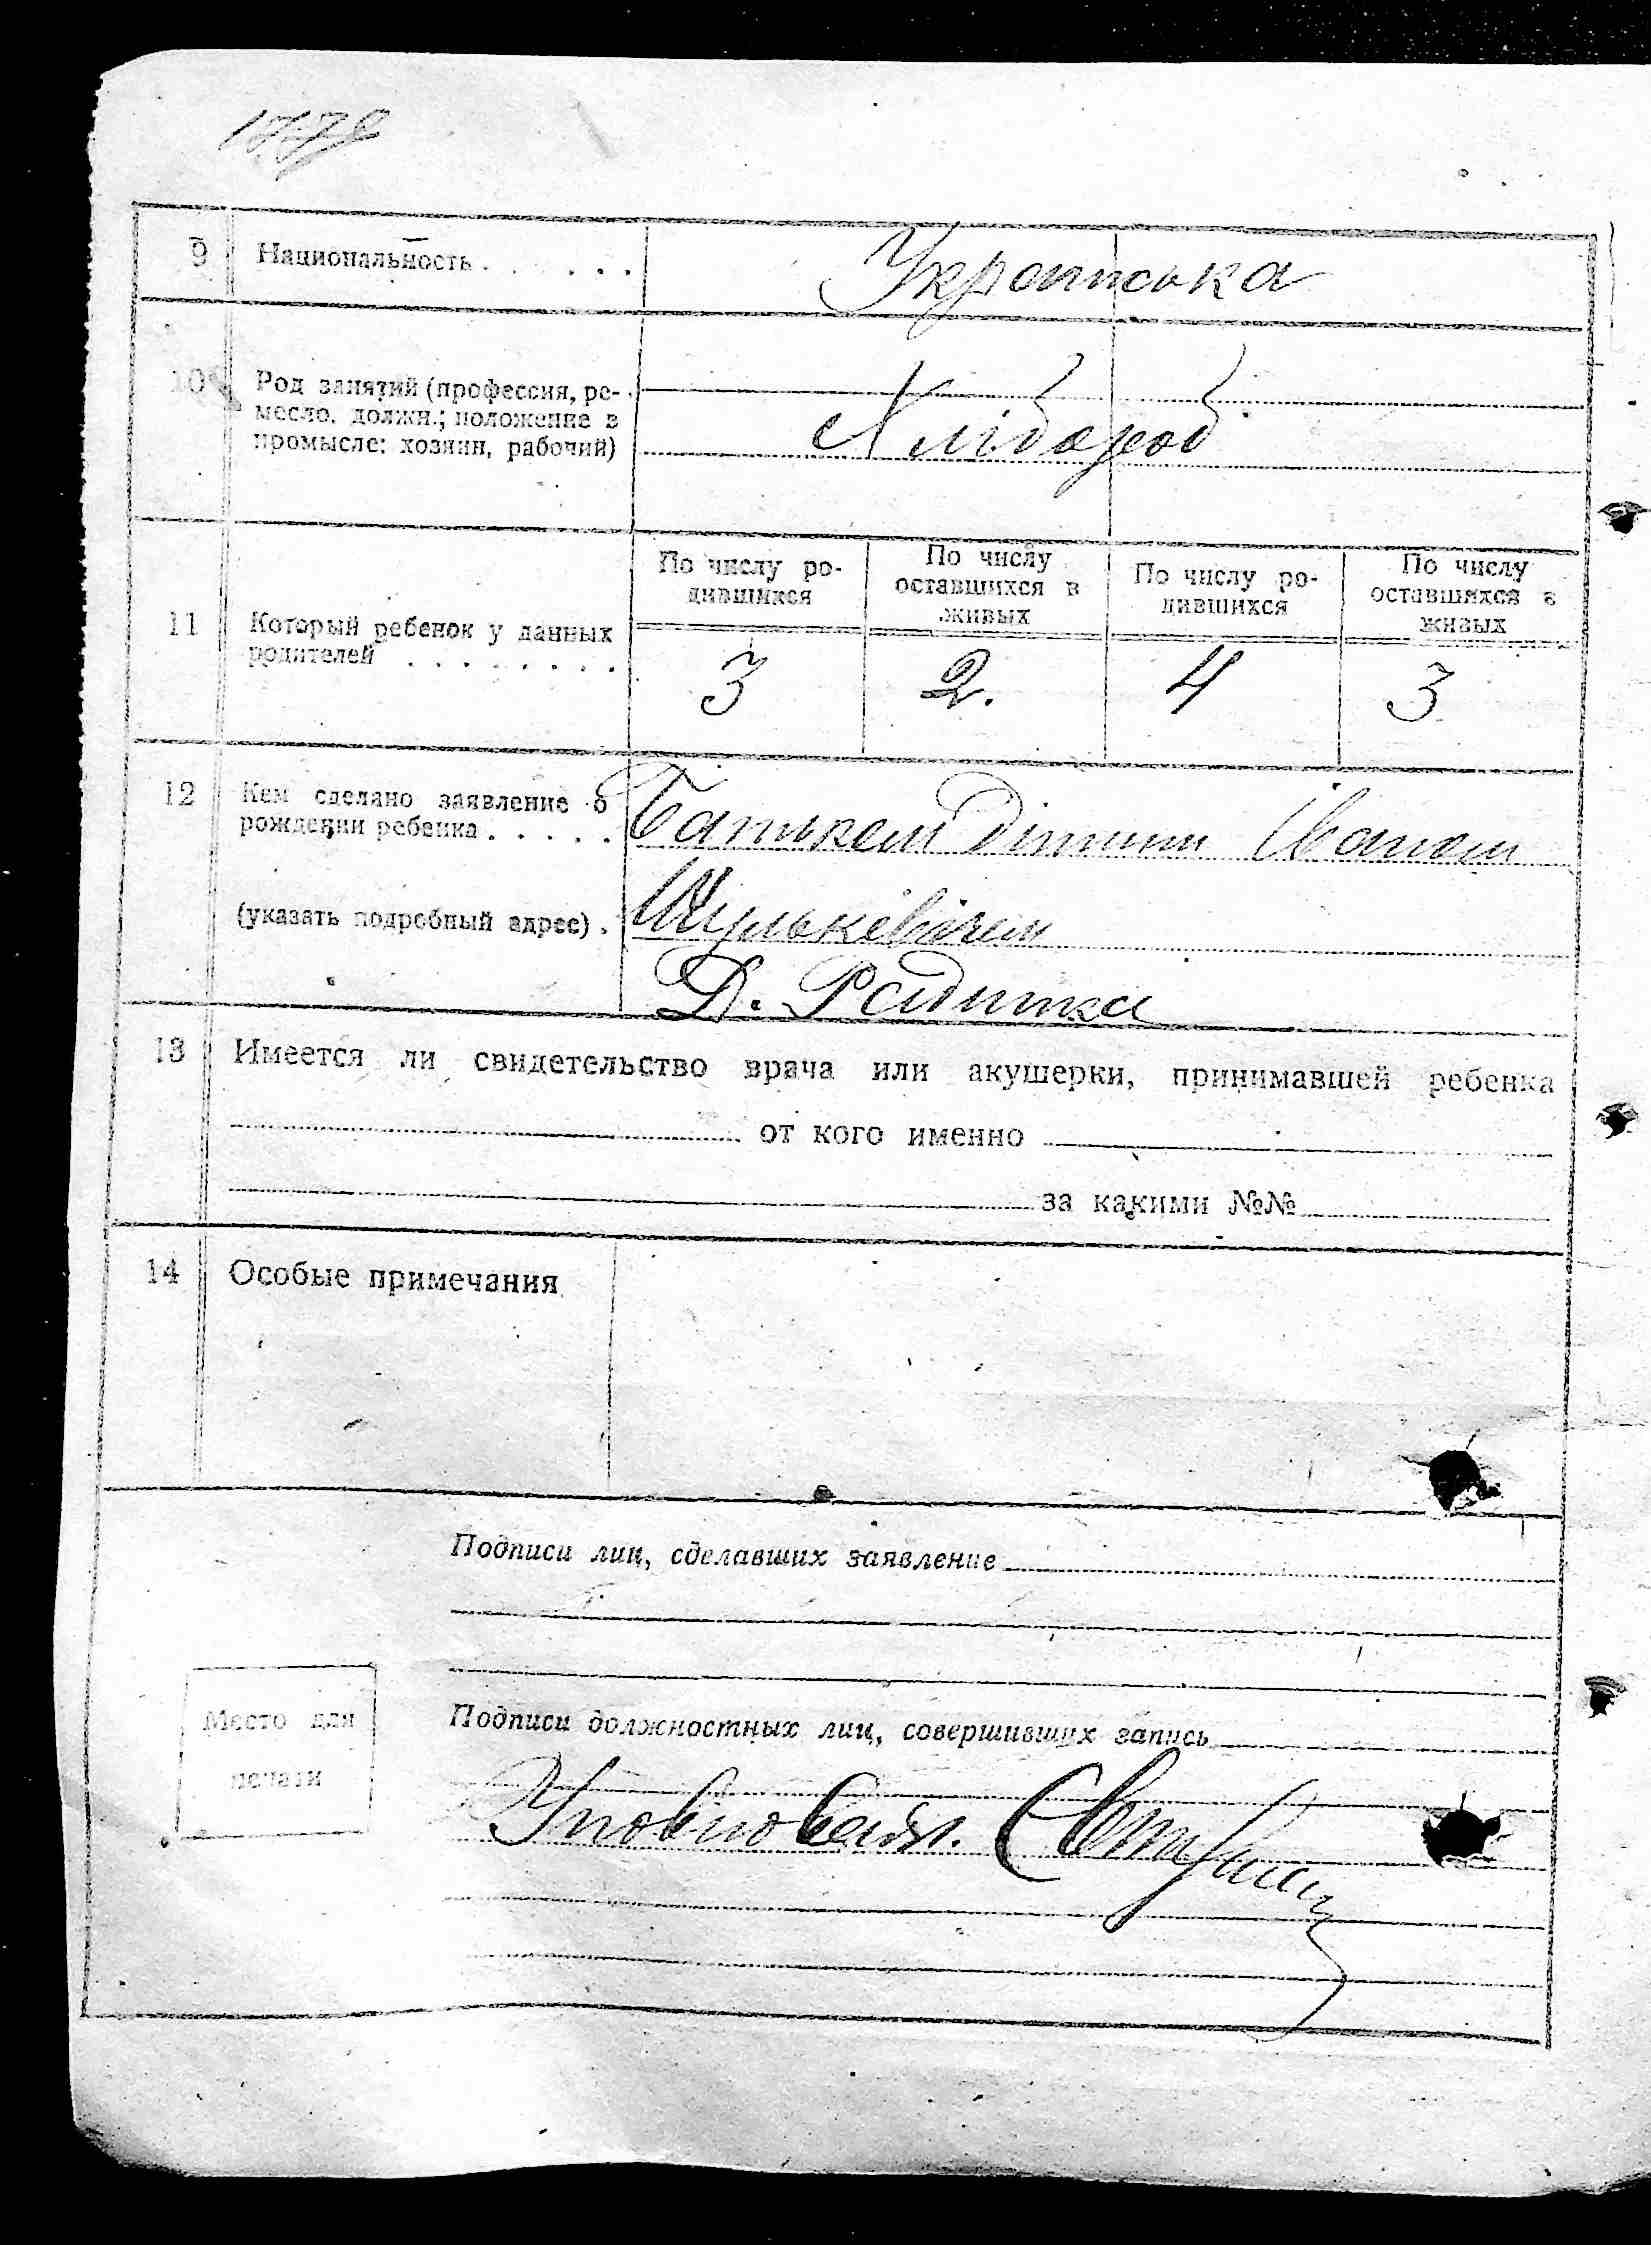 1778
9 Национальность . . . . . . Українська
10 Род занятий (профессия, ре-
месло, должн.; положение в
промысле: хозяин, рабочий)
Хлібороб
По числу ро- По числу По числу ро- По числу
дившихся оставшихся в дившихся оставшихся в
живых живых
11 Который ребенок у данных
родителей . . . . . . . .
3 2. 4 3
12 Кем сделано заявление о
рождении ребенка . . . . . Батьком дитини Іваном
(указать подробный адрес) . Шулькевічем
Д. Радитка
13 Имеется ли свидетельство врача или акушерки, принимавшей ребенка
от кого именно
за какими №№
14 Особые примечания
Подписи лиц, сделавших заявление
Место для
печати
Подписи должностных лиц, совершивших запись